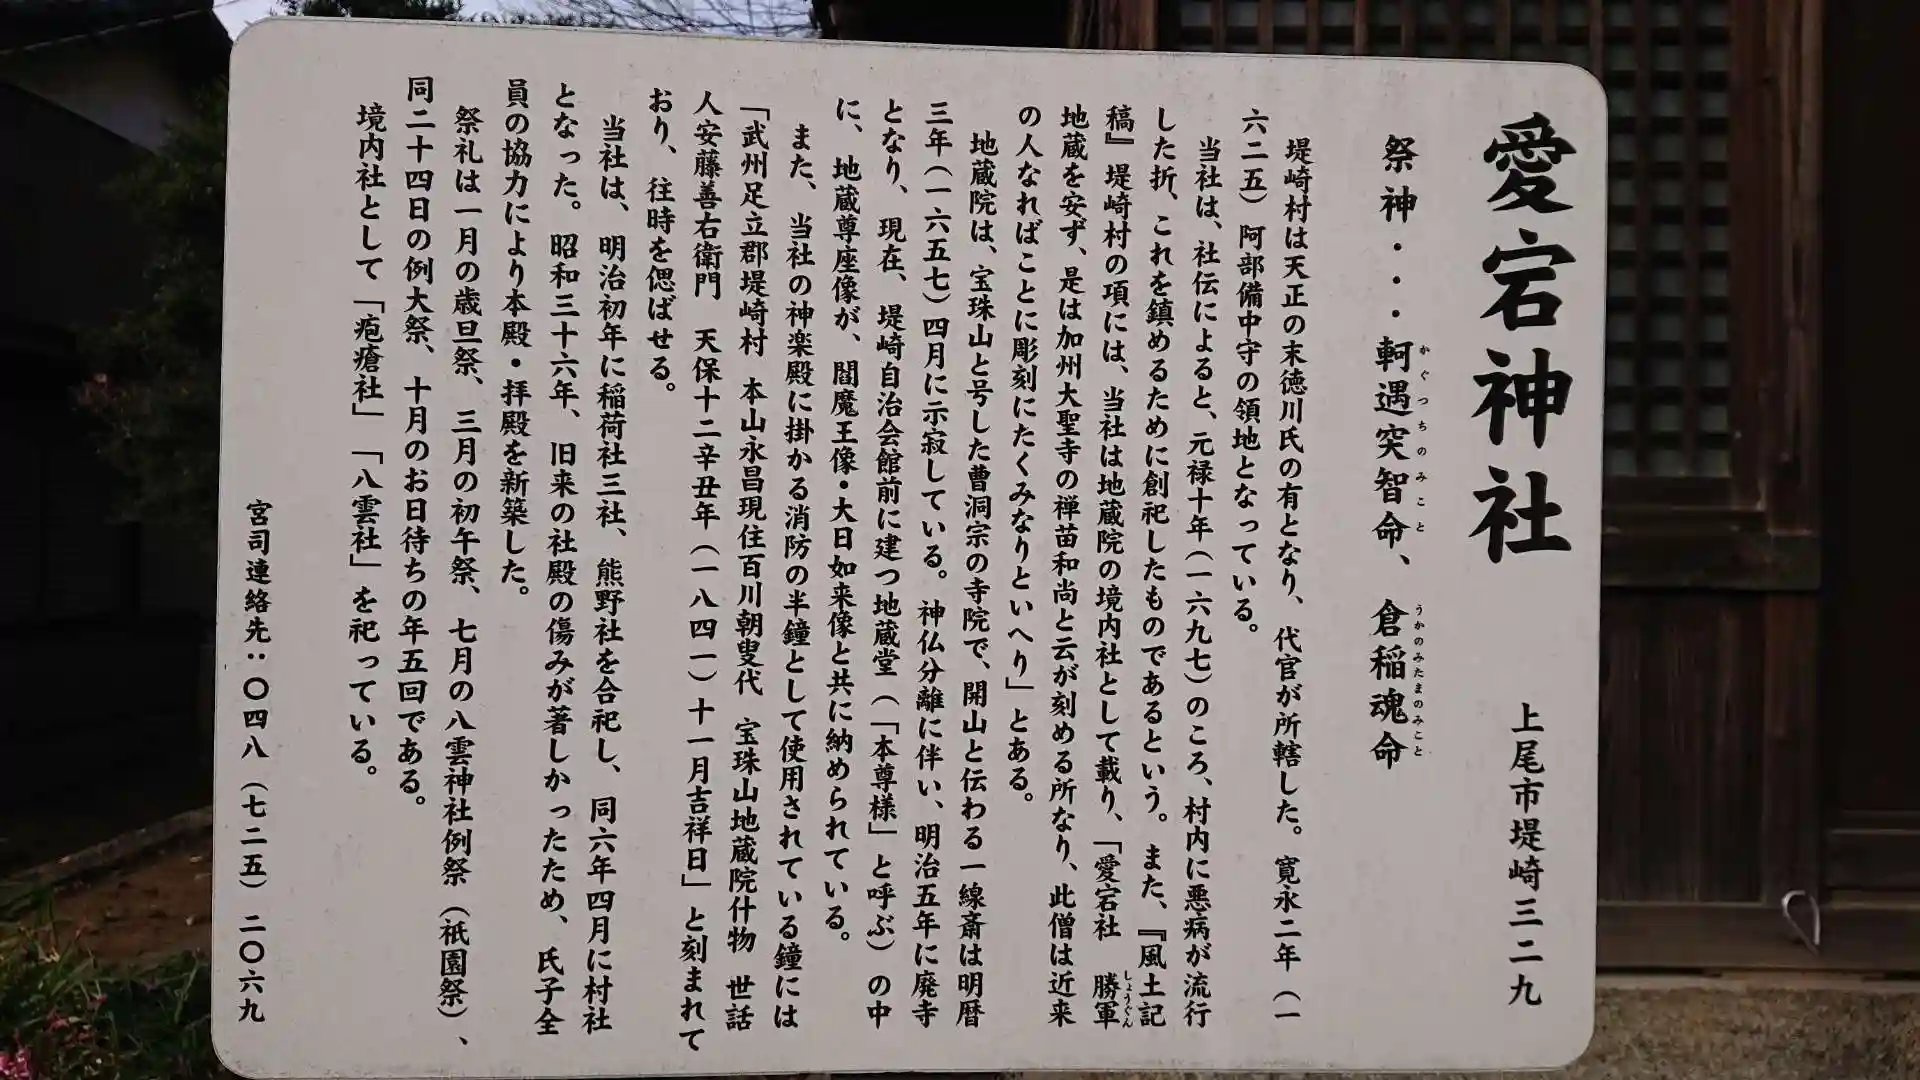 愛宕神社
上尾市堤崎三二九
祭神・・・軻遇突智命、倉稲魂命
かぐつちのみこと
うかのみたまのみこと
堤崎村は天正の末徳川氏の有となり、代官が所轄した。寛永二年（一
六二五）阿部備中守の領地となっている。
当社は、社伝によると、元禄十年（一六九七）のころ、村内に悪病が流行
した折、これを鎮めるために創祀したものであるという。また、『風土記
稿』堤崎村の項には、当社は地蔵院の境内社として載り、「愛宕社 勝軍
しょうぐん
地蔵を安ず、是は加州大聖寺の禅苗和尚と云が刻める所なり、此僧は近来
の人なればことに彫刻にたくみなりといへり」とある。
地蔵院は、宝珠山と号した曹洞宗の寺院で、開山と伝わる一線斎は明暦
三年（一六五七）四月に示寂している。神仏分離に伴い、明治五年に廃寺
となり、現在、堤崎自治会館前に建つ地蔵堂（「本尊様」と呼ぶ）の中
に、地蔵尊座像が、閻魔王像・大日如来像と共に納められている。
また、当社の神楽殿に掛かる消防の半鐘として使用されている鐘には
「武州足立郡堤崎村 本山永昌現住百川朝叟代 宝珠山地蔵院什物 世話
人安藤善右衛門 天保十二辛丑年（一八四一）十一月吉祥日」と刻まれて
おり、往時を偲ばせる。
当社は、明治初年に稲荷社三社、熊野社を合祀し、同六年四月に村社
となった。昭和三十六年、旧来の社殿の傷みが著しかったため、氏子全
員の協力により本殿・拝殿を新築した。
祭礼は一月の歳旦祭、三月の初午祭、七月の八雲神社例祭（祇園祭）、
同二十四日の例大祭、十月のお日待ちの年五回である。
境内社として「疱瘡社」「八雲社」を祀っている。
宮司連絡先：〇四八（七二五）二〇六九